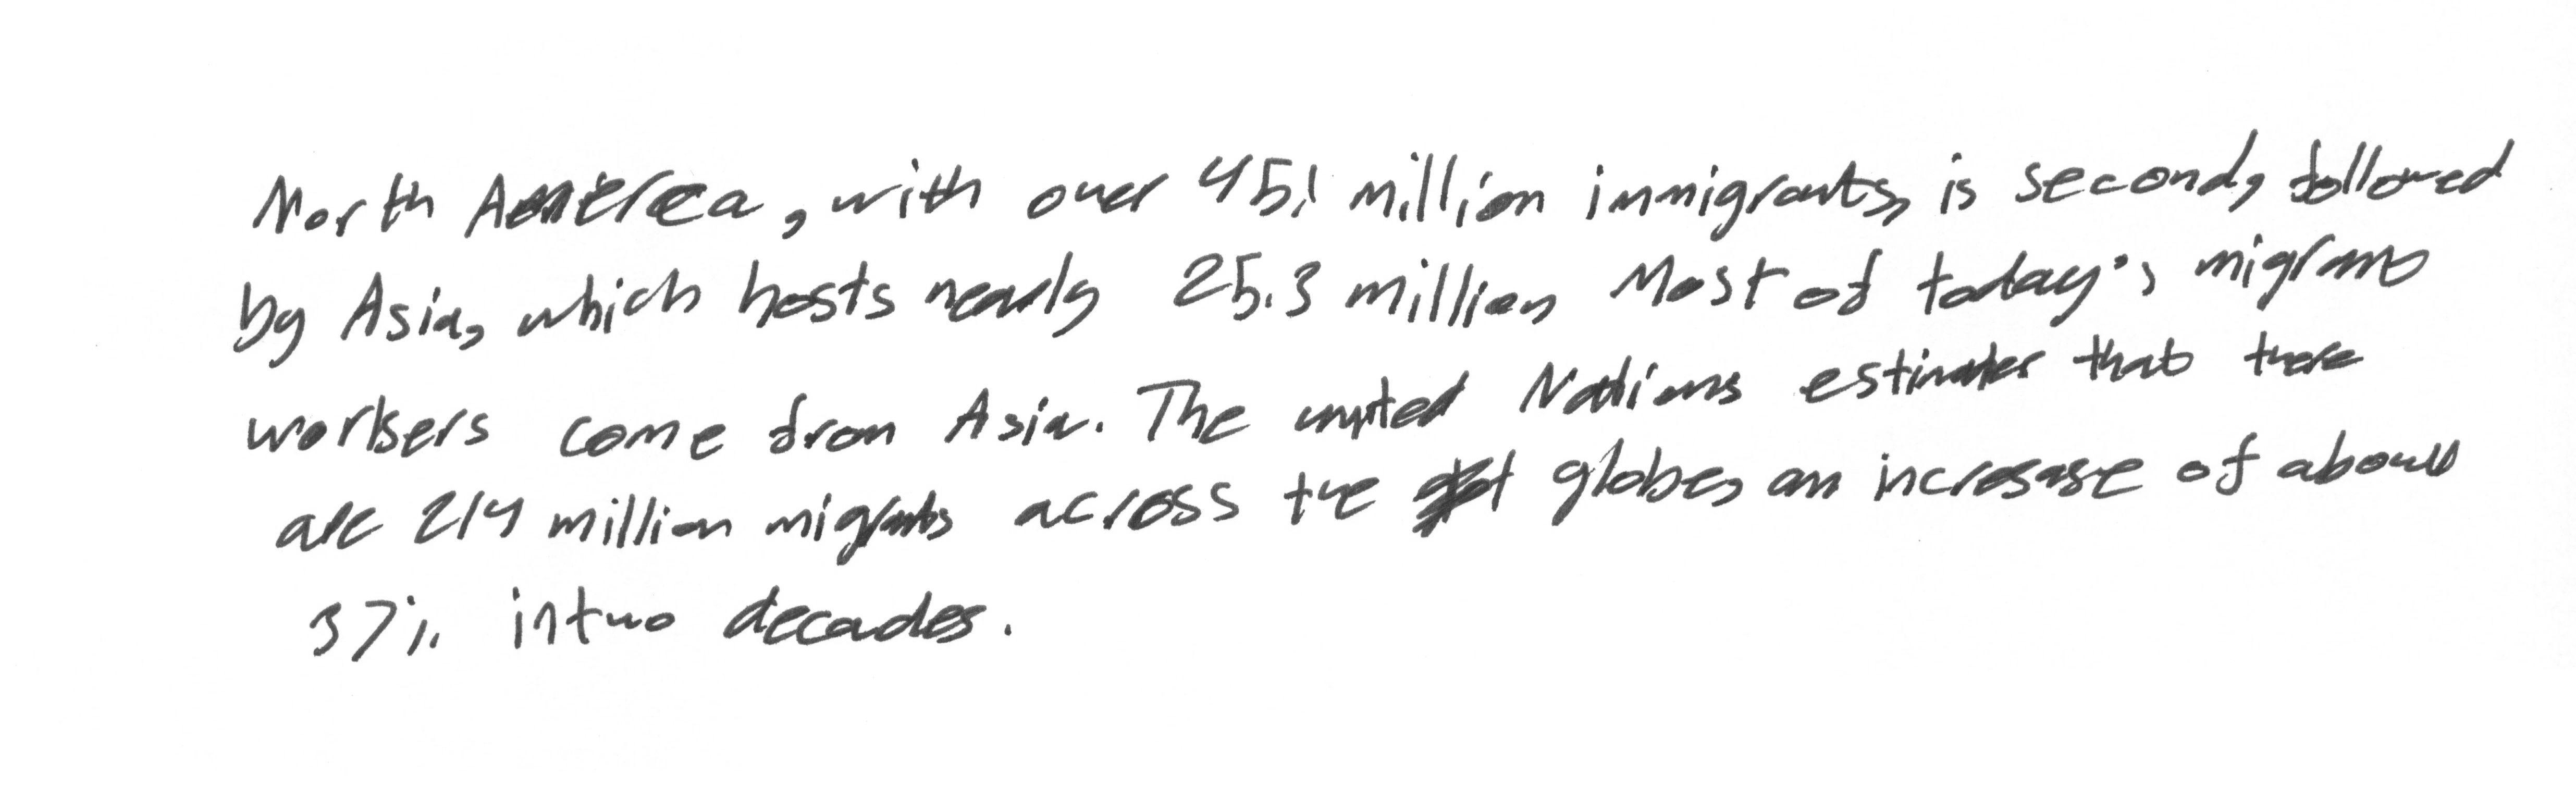 North America, with over 45.1 million immigrants, is second, followed
by Asia, which hosts nearly 25.3 million Most of today's migrant
workers come from Asia. The united Nations estimates that there
are 214 million migrants across the globe, an increase of about
37% in two decades.